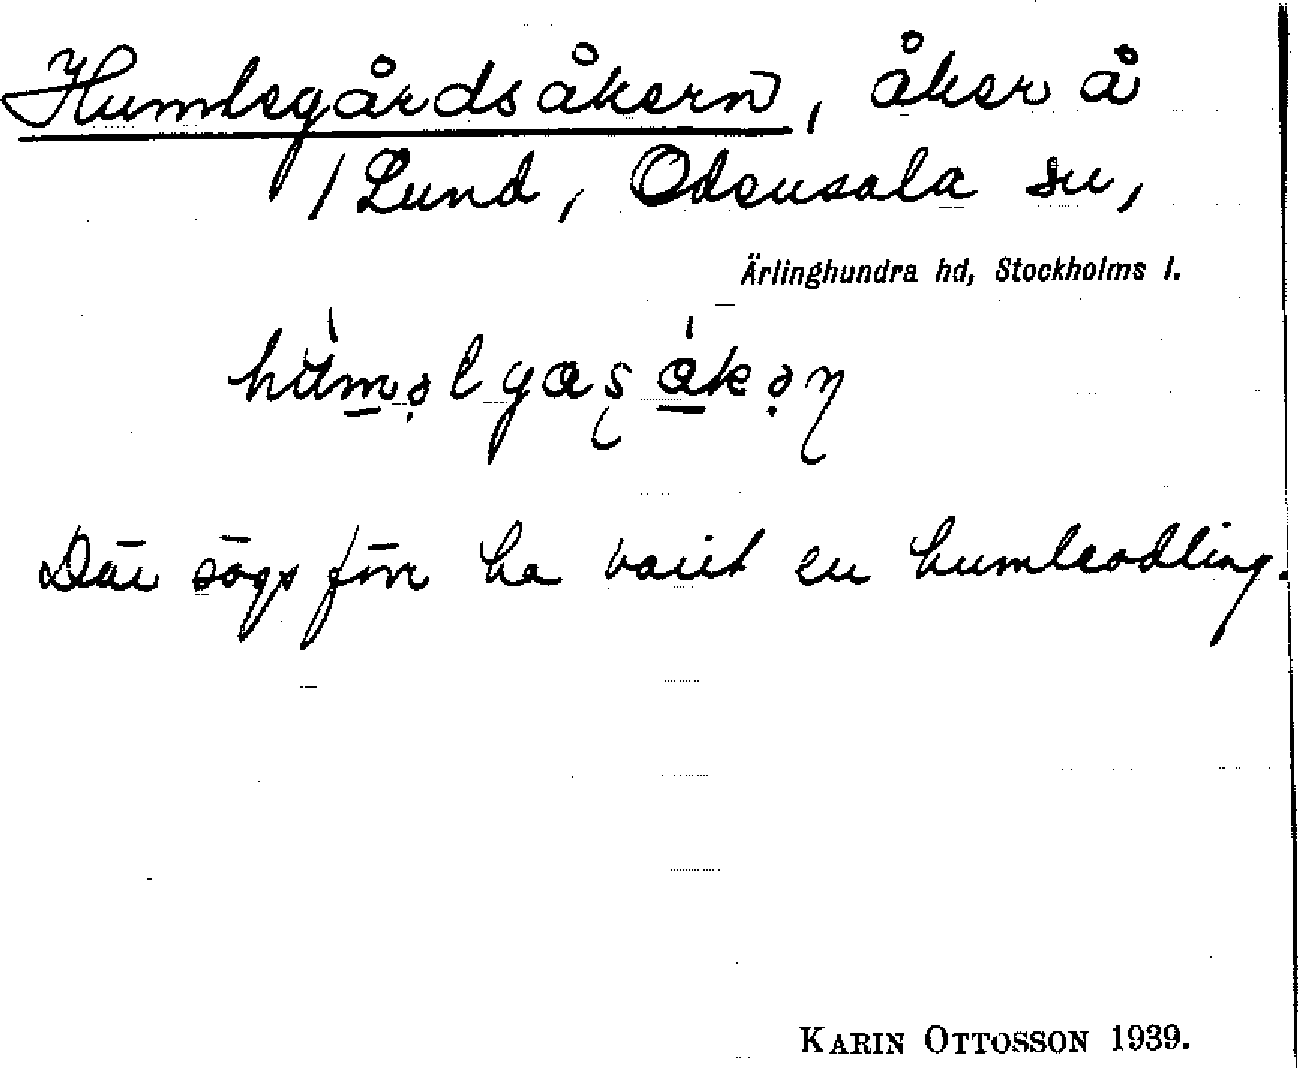 Humlegårdsåkern, åker å
/ Lund, Odensala sn,
Ärlinghundra hd, Stockholms l.
hùməlgaʂåkəɳ
Där sägs förr ha varit en humleodling.
KARIN OTTOSSON 1939.